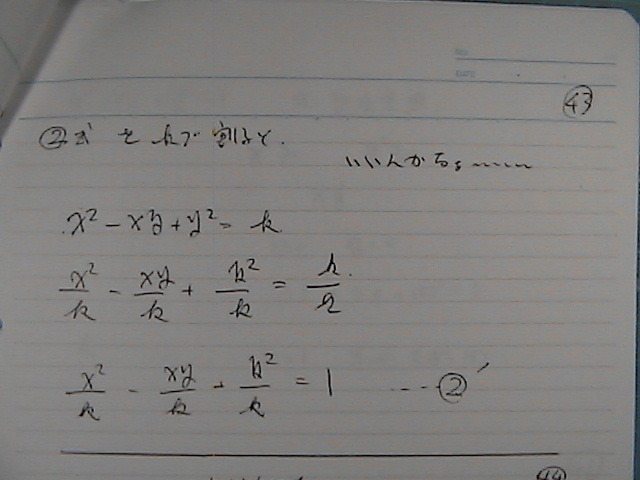 43
② を kで割ると.
いいんかな
x² - xy + y² = k
x²/k - xy/k + y²/k = k/k
x²/k - xy/k + y²/k = 1 ‥‥ ②′
44